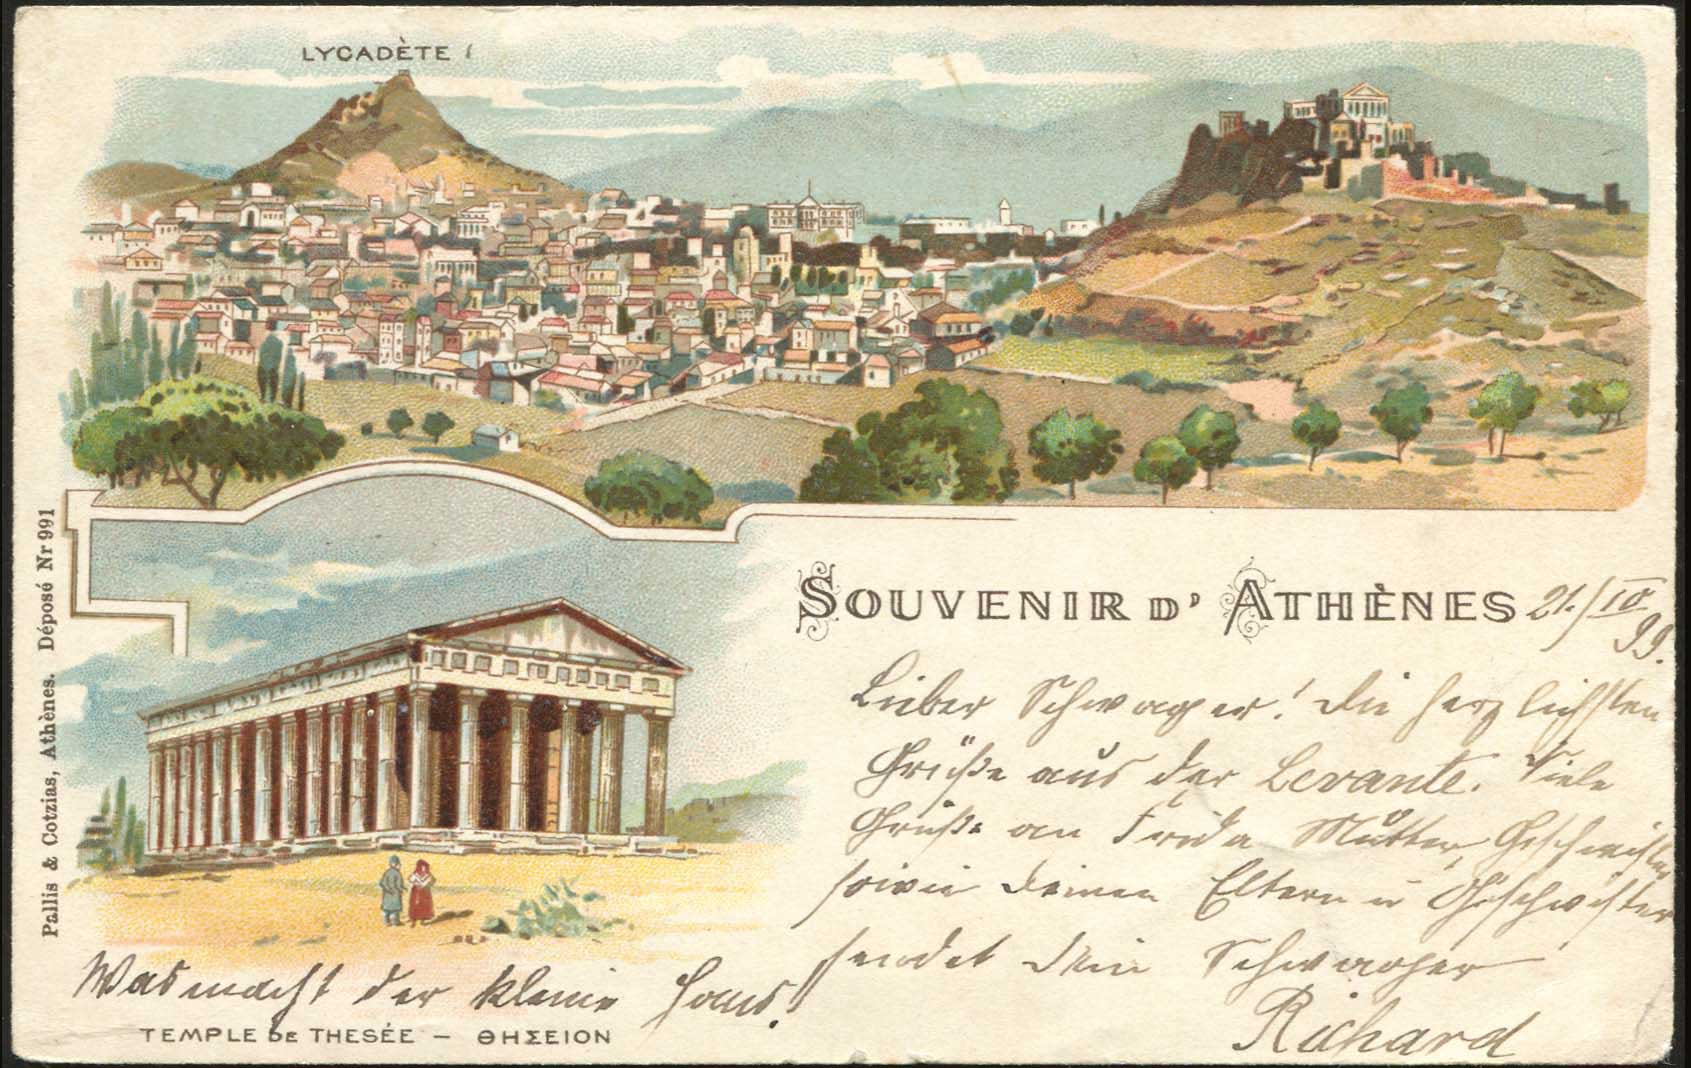 LYCADÈTE
Pallis & Cotzias, Athènes. Déposé Nr 991
SOUVENIR D' ATHÈNES
21./IV
99.
Lieber Schwager! Die herzlichsten
Grüße aus der Levante. Viele
Grüße an Frida Mutter, Geschwister
sowie Deinen Eltern u Geschwister
sendet Dein Schwager
Richard
Was macht der kleine Hans.
TEMPLE DE THESÉE — ΘΗΣΕΙΟΝ